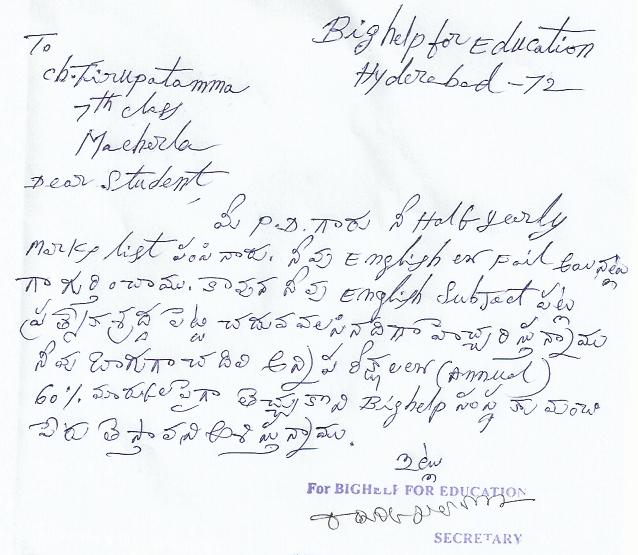 Bighelp for Education
Hyderabad - 72
To
Ch. Tirupatamma
7th class
Macherla
Dear Student,
మీ P.D. గారు నీ Half yearly
Marks list పంపినారు. నీవు English లో Fail అయినట్లు
గా గుర్తించాము. కావున నీవు English Subject పట్ల
ప్రత్యేక శ్రద్ధ పెట్టి చదువవలసినదిగా హెచ్చరిస్తున్నాము
నీవు బాగుగా చదివి అన్ని పరీక్షలలో (Annual)
60% మార్కులపైగా తెచ్చుకొని Bighelp సంస్థకు మంచి
పేరు తెస్తావని ఆశిస్తున్నాము.
ఇట్లు
For BIGHELP FOR EDUCATION
SECRETARY